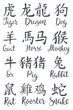 虎 龍 狗
Tiger Dragon Dog
羊 馬 猴
Goat Horse Monkey
牛 豬 兔
Ox Pig Rabbit
鼠 雞 蛇
Rat Rooster Snake